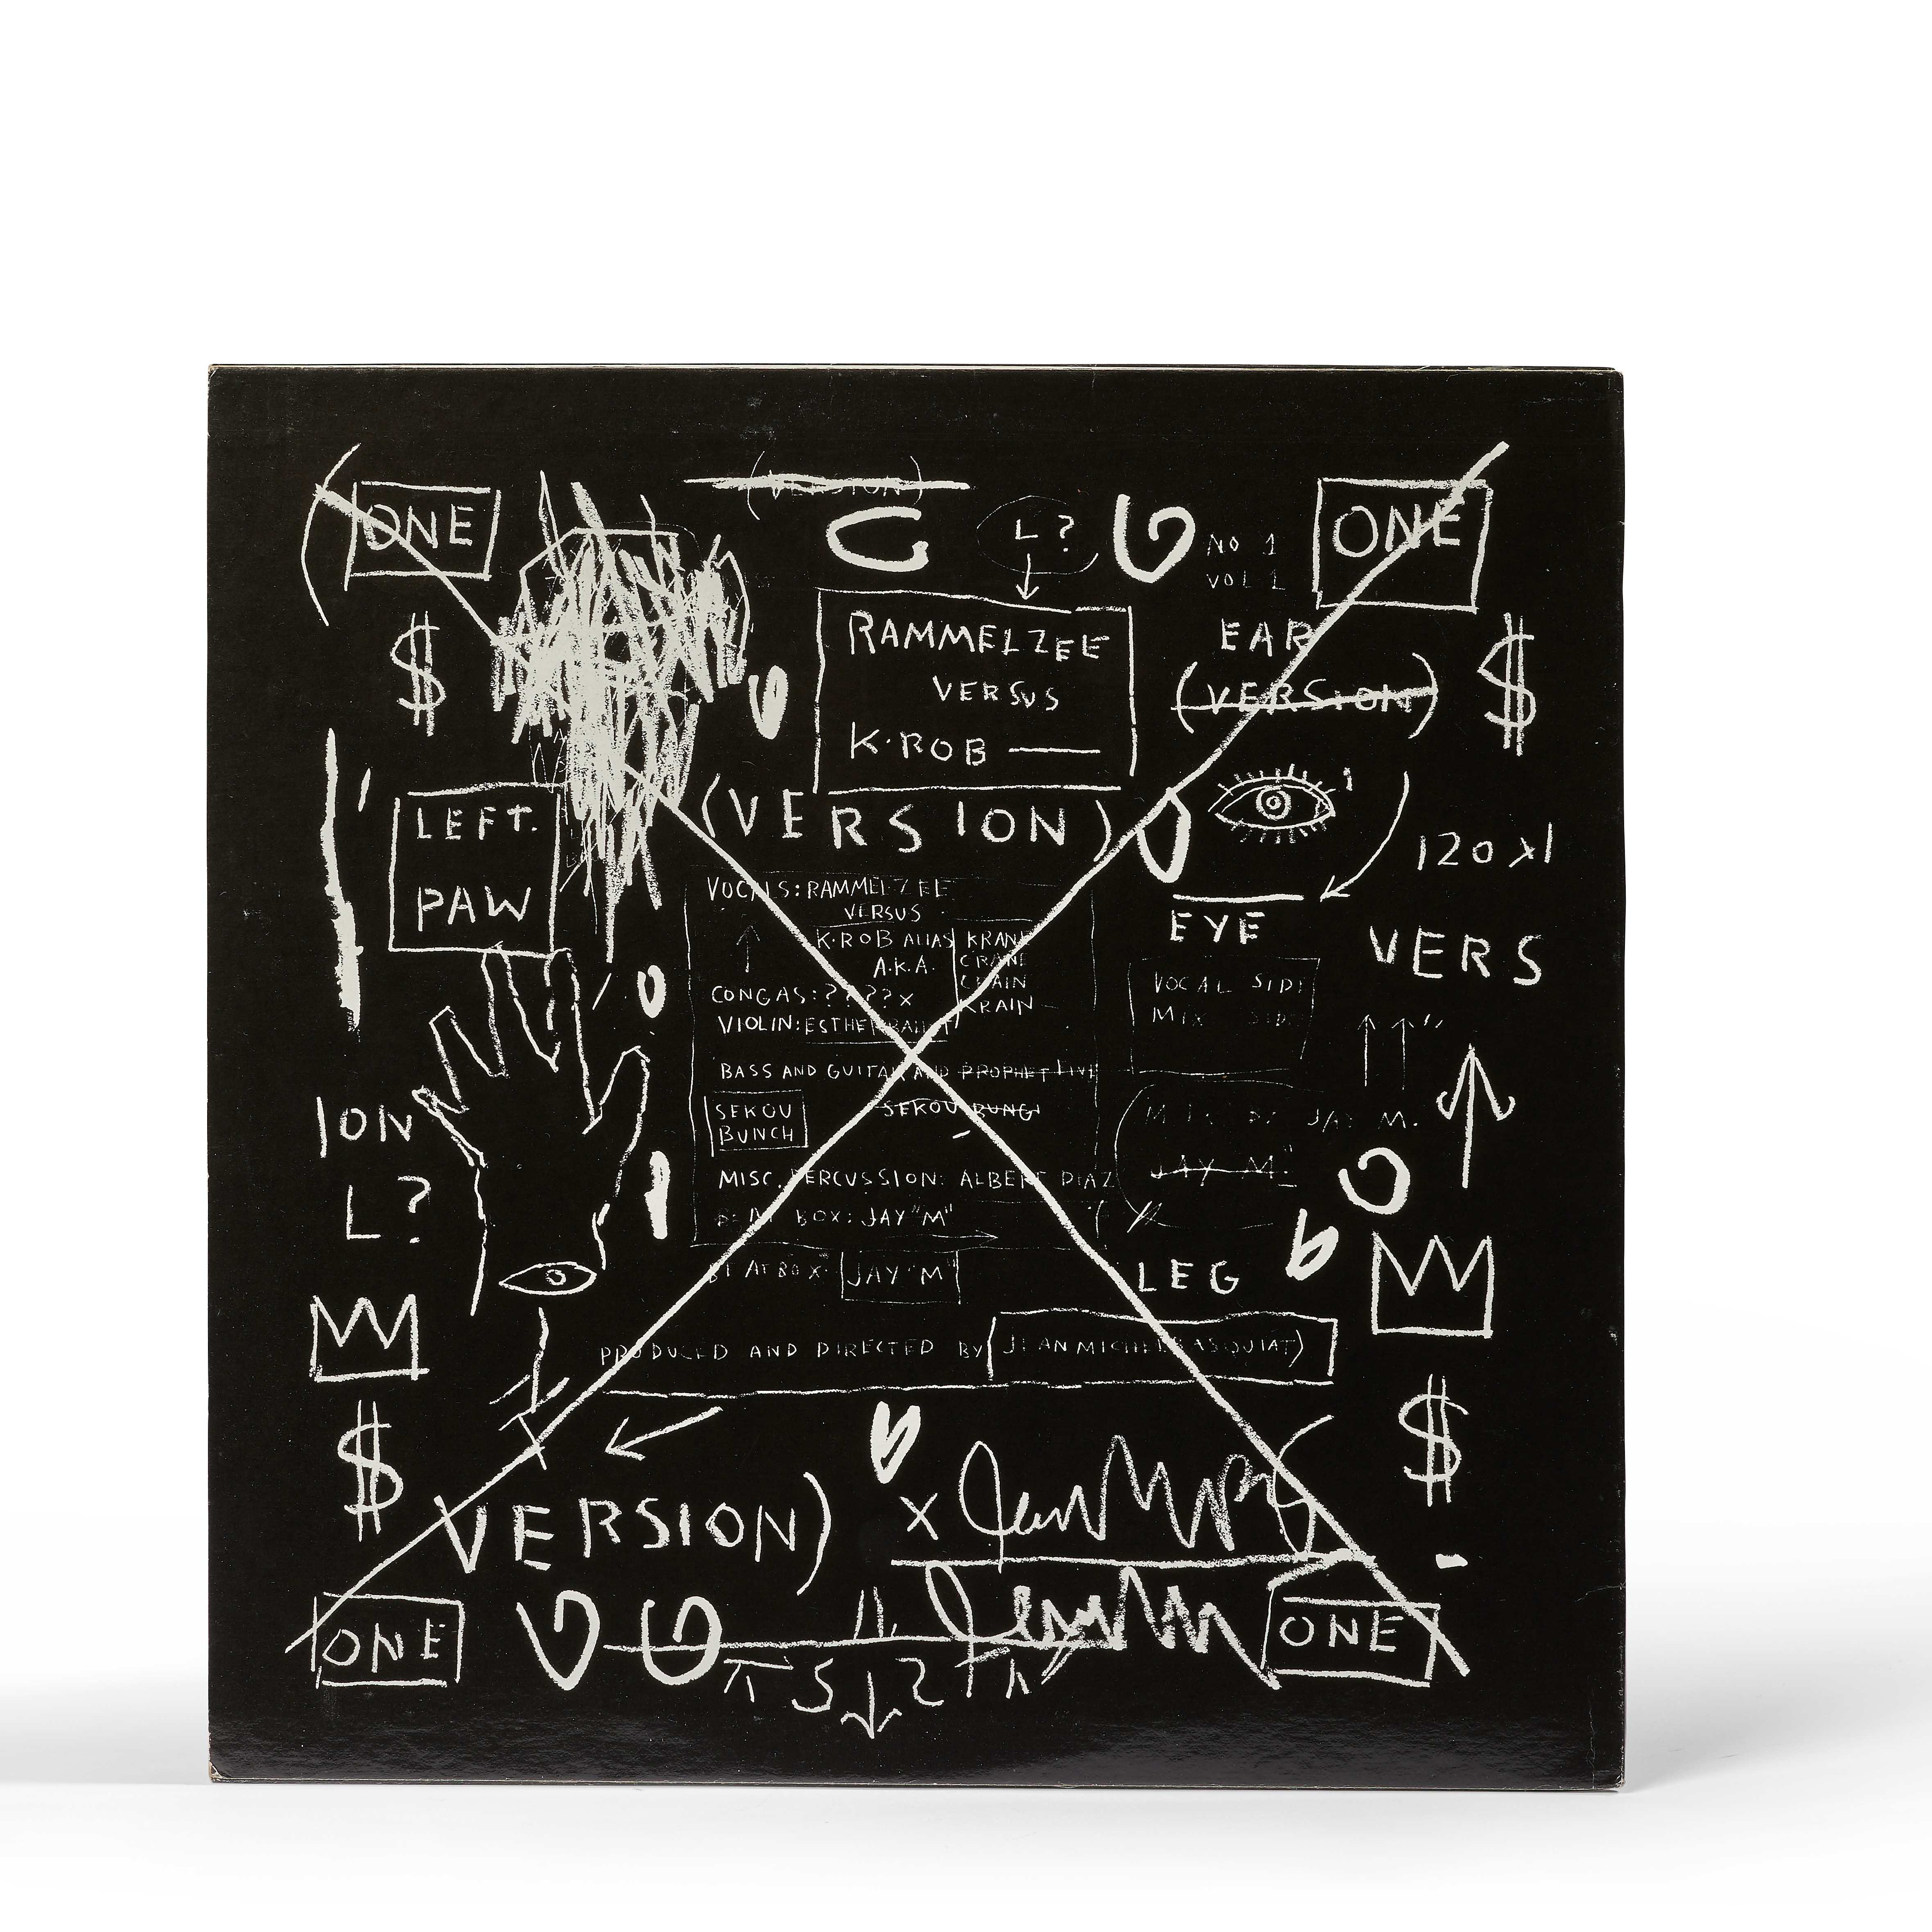 (VERSION)
ONE
L?
NO 1
VOL 1
ONE
RAMMELZEE
VERSUS
K·ROB
EAR
(VERSION)
$
$
LEFT.
PAW
(VERSION)
EYE
120 X 1
VERS
VOCALS: RAMMELZEE
VERSUS
K·ROB ALIAS
A.K.A.
KRANE
CRANE
CHAIN
KRAIN
CONGAS: ???? X
VIOLIN: ESTHER
BASS AND GUITAR AND PROPHET FIVE
SEKOU
BUNCH
SEKOU BUNG
MISC. PERCUSSION: ALBERT DIAZ
BEAT BOX: JAY "M"
BEAT BOX: JAY "M"
VOCAL SIDE
MIX SIDE
JAY M.
JAY M."
ION
L?
LEG
PRODUCED AND DIRECTED BY JEAN MICHEL BASQUIAT)
$
$
VERSION)
X
ONE
ONE